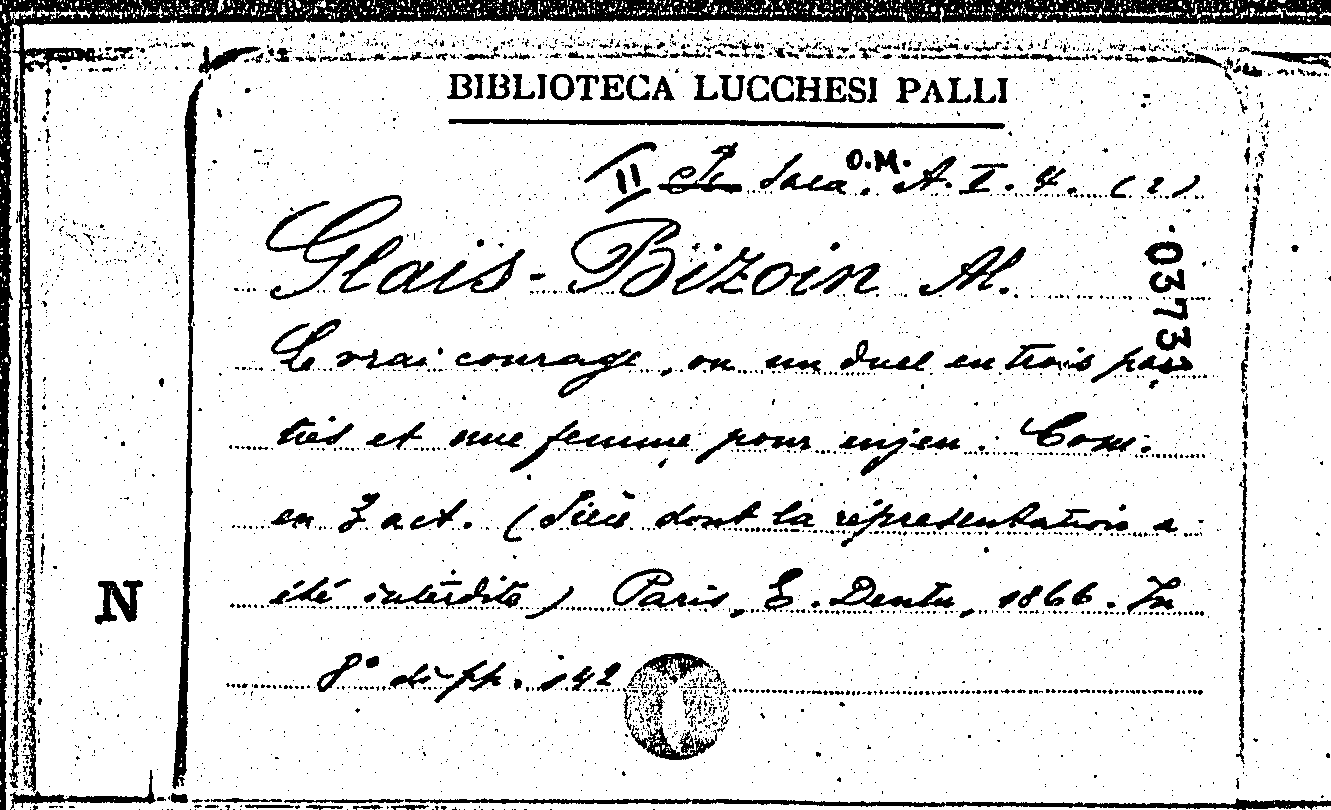 BIBLIOTECA LUCCHESI PALLI
II Sala O.M. A. I. 4. (2)
Glais-Bizoin Al.
03733
Le vrai courage, ou un duel en trois par
ties et une femme pour enjeu. Com.
en 3 act. (Pièce dont la représentation a
été interdite) Paris, E. Dentu, 1866. In
8° di pp. 142
N